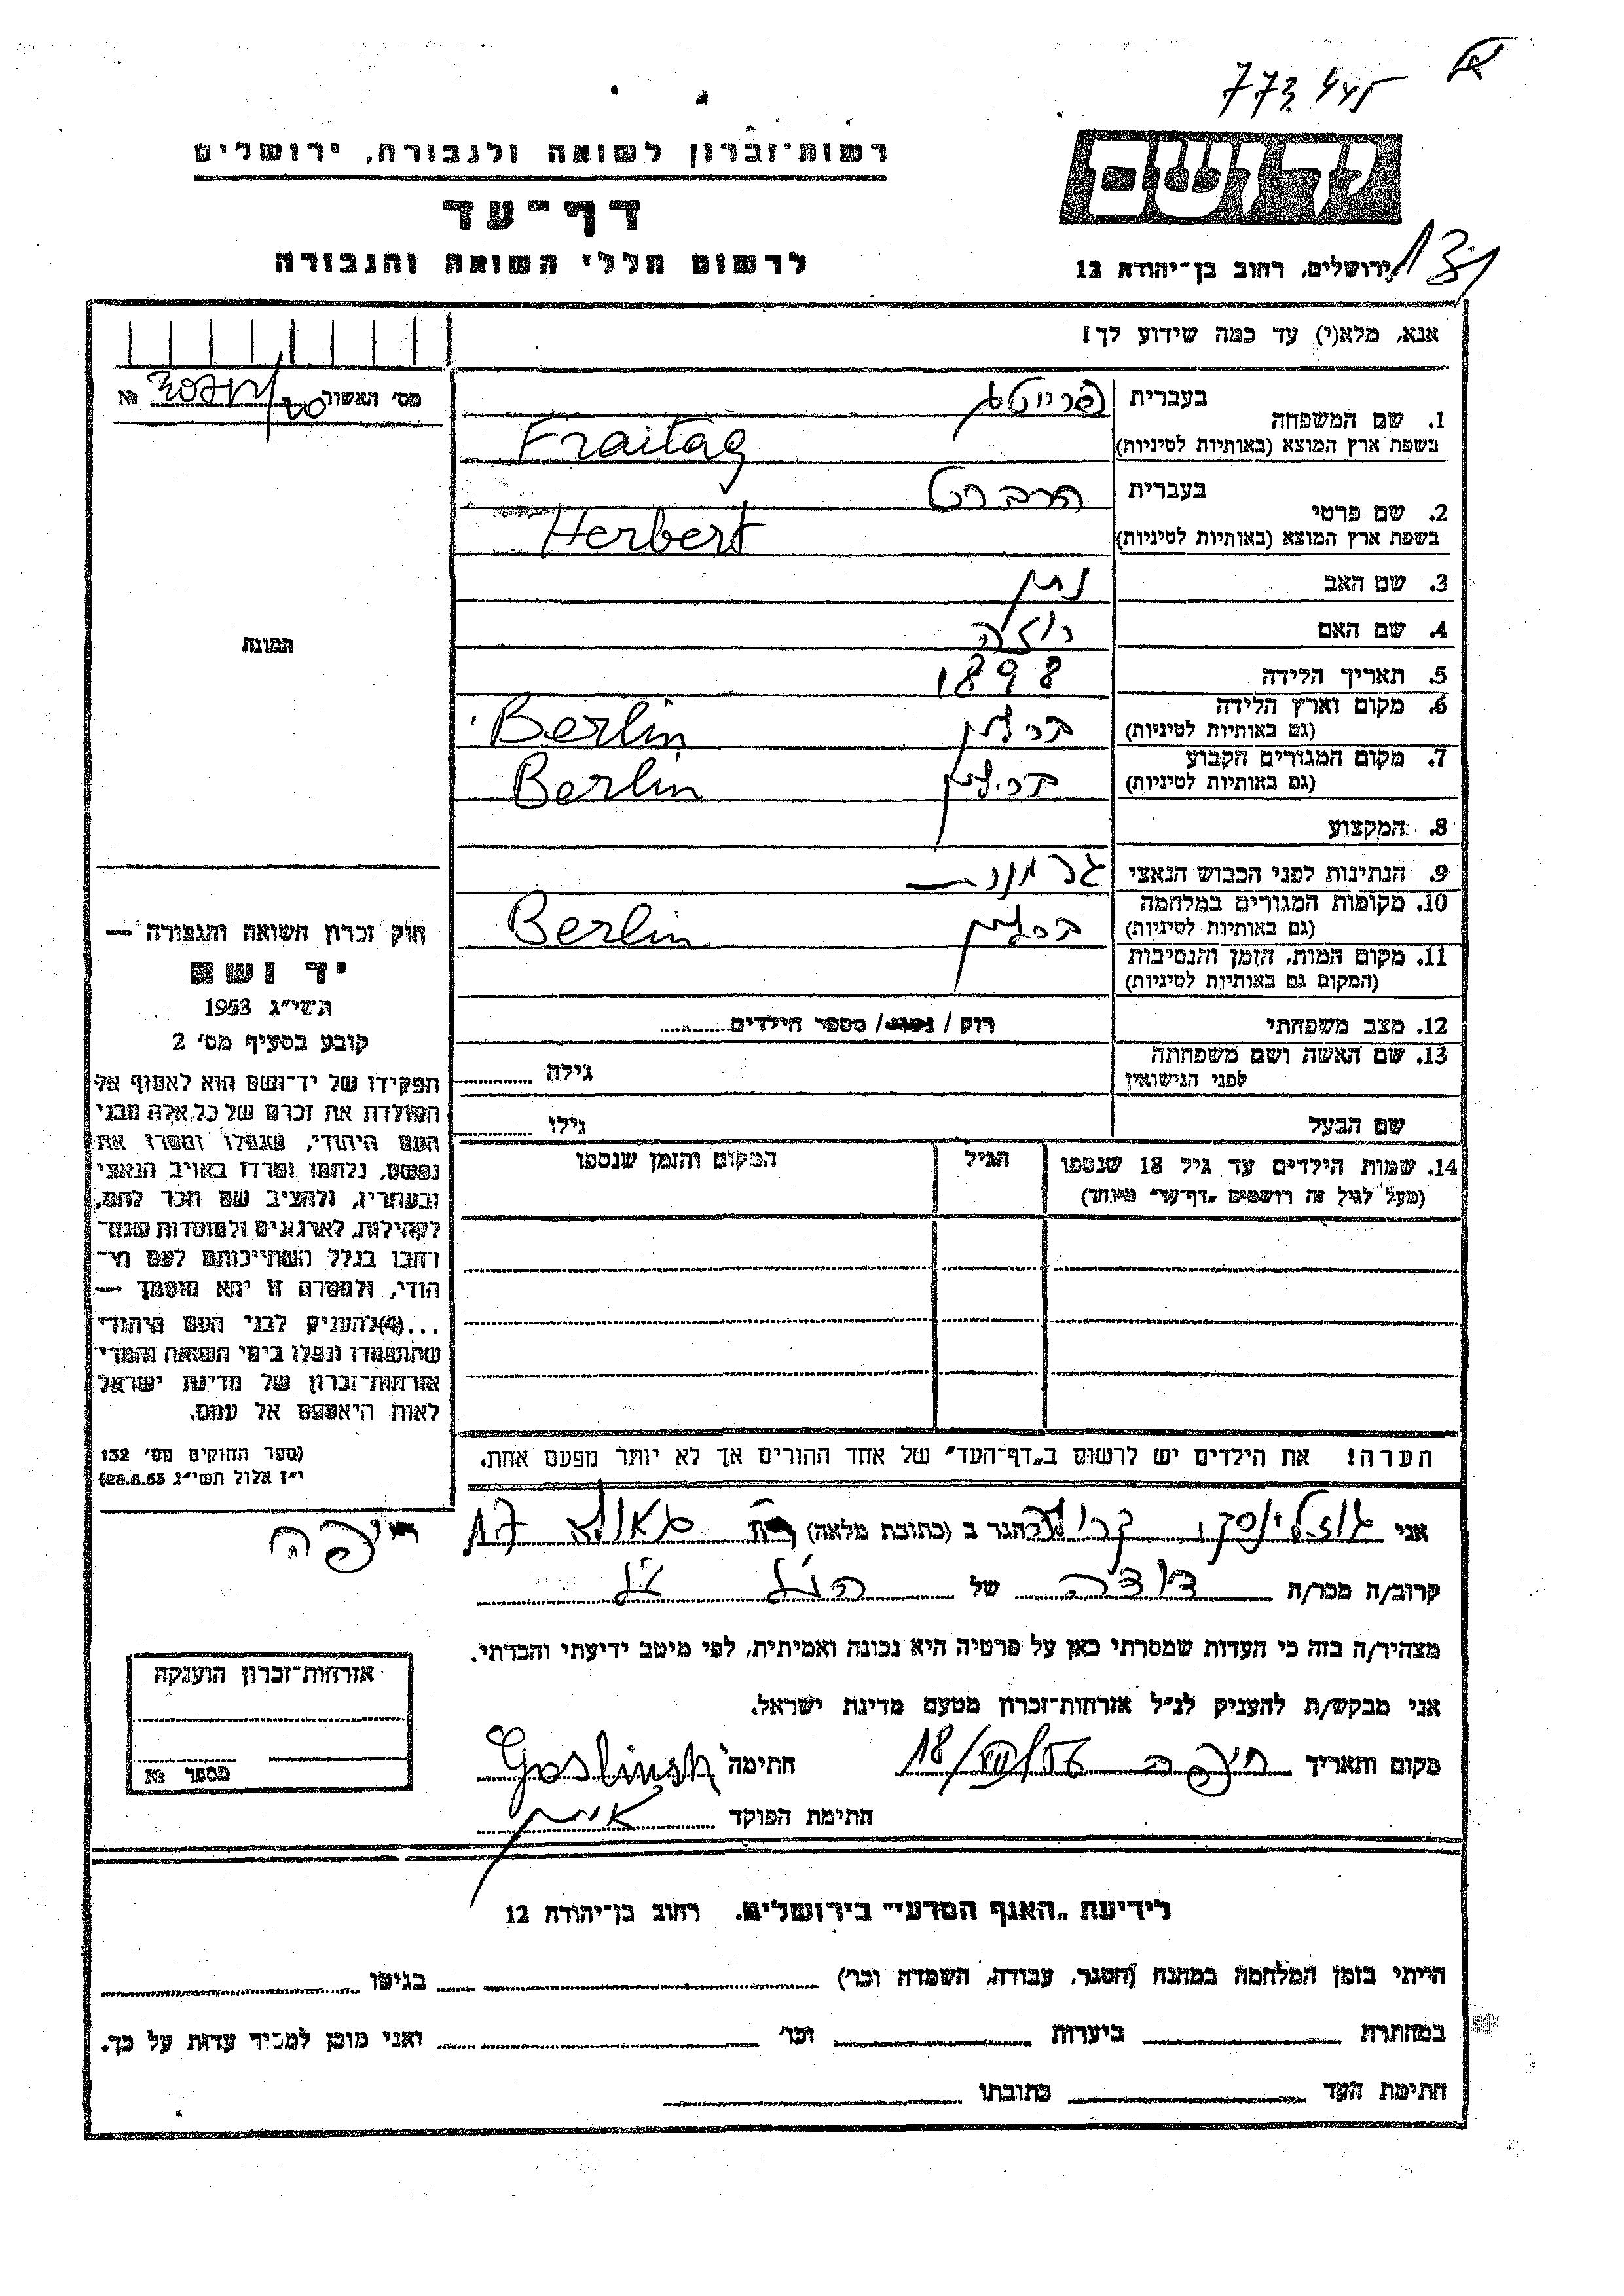 רשות־זכרון לשואה ולגבורה, ירושלים
דף־עד
לרשום חללי השואה והגבורה
יד ושם
ירושלים, רחוב בן־יהודה 12
אנא, מלא(י) עד כמה שידוע לך!
מס' האשור №
1. שם המשפחה
בעברית פרייטג
בשפת ארץ המוצא (באותיות לטיניות) Fraitag
2. שם פרטי
בעברית הרברט
בשפת ארץ המוצא (באותיות לטיניות) Herbert
3. שם האב נתן
4. שם האם רוזה
5. תאריך הלידה 1898
6. מקום וארץ הלידה ברלין Berlin
(גם באותיות לטיניות)
7. מקום המגורים הקבוע ברלין Berlin
(גם באותיות לטיניות)
8. המקצוע
9. הנתינות לפני הכבוש הנאצי גרמנית
10. מקומות המגורים במלחמה ברלין Berlin
(גם באותיות לטיניות)
11. מקום המות, הזמן והנסיבות
(המקום גם באותיות לטיניות)
12. מצב משפחתי רוק / נשוי / מספר הילדים
13. שם האשה ושם משפחתה גילה
לפני הנישואין
שם הבעל גילו
14. שמות הילדים עד גיל 18 שנספו הגיל המקום והזמן שנספו
(מעל לגיל זה רושמים "דף־עד" מיוחד)
הערה! את הילדים יש לרשום ב"דף־העד" של אחד ההורים אך לא יותר מפעם אחת.
תמונה
חוק זכרון השואה והגבורה —
יד ושם
תשי"ג 1953
קובע בסעיף מס' 2
תפקידו של יד־ושם הוא לאסוף אל
המולדת את זכרם של כל אלה מבני
העם היהודי, שנפלו ומסרו את
נפשם, נלחמו ומרדו באויב הנאצי
ובעוזריו, ולהציב שם וזכר להם,
לקהילות, לארגונים ולמוסדות שנח־
רבו בגלל השתייכותם לעם הי־
הודי, ולמטרה זו יהא מוסמך —
...(4) להעניק לבני העם היהודי
שהושמדו ונפלו בימי השואה והמרי
אזרחות־זכרון של מדינת ישראל
לאות היאספם אל עמם.
(ספר החוקים מס' 132
י"ז אלול תשי"ג 28.8.53)
אני הגר ב (כתובת מלאה) 17
חיפה
קרוב/ה מכר/ה דודה של הנ"ל
מצהיר/ה בזה כי העדות שמסרתי כאן על פרטיה היא נכונה ואמיתית, לפי מיטב ידיעתי והכרתי.
אני מבקש/ת להעניק לנ"ל אזרחות־זכרון מטעם מדינת ישראל.
מקום ותאריך חיפה 18/VII/56 חתימה
חתימת הפוקד
אזרחות־זכרון הוענקה
מספר №
לידיעת "האגף המדעי" בירושלים. רחוב בן־יהודה 12
הייתי בזמן המלחמה במחנה (הסגר, עבודה, השמדה וכו') בגיטו
במחתרת ביערות וכו' ואני מוכן למסיר עדות על כך.
חתימת העד כתובתו